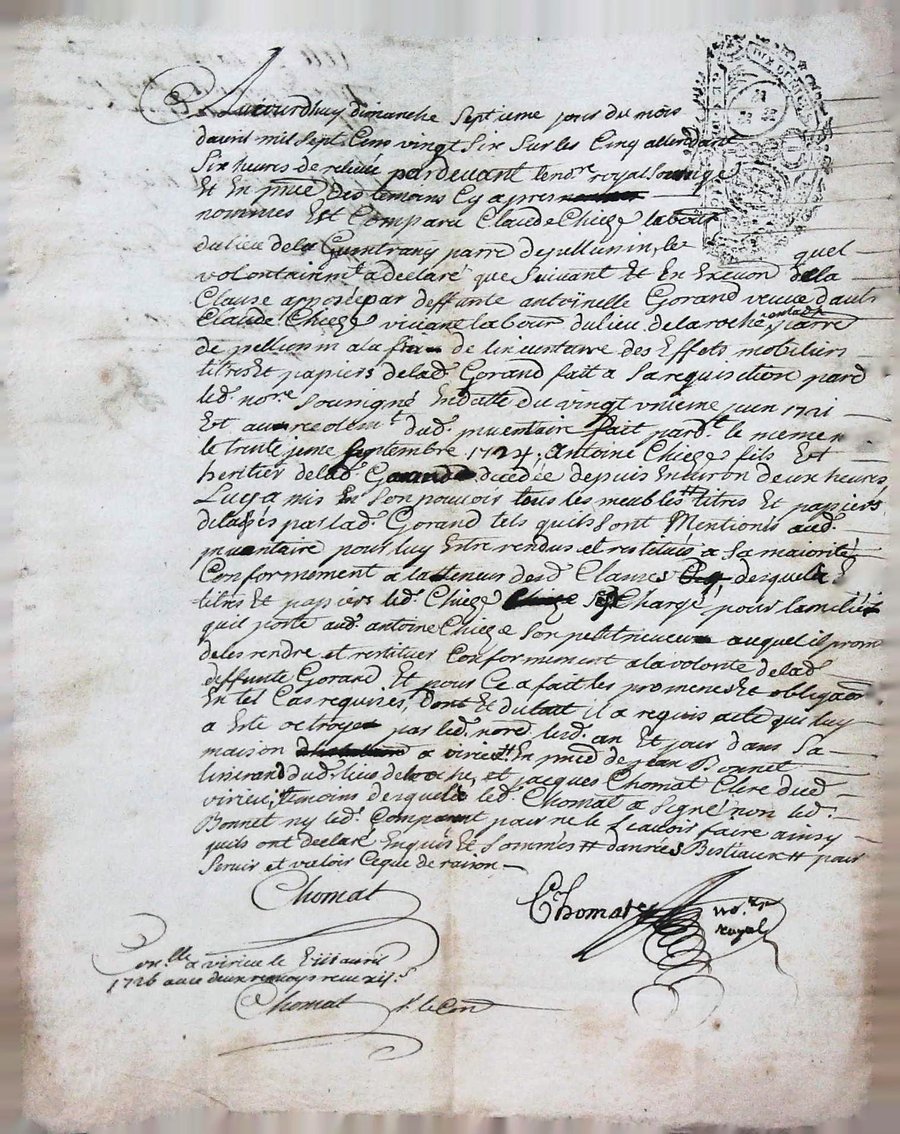 Aujourdhuy dimanche septieme jour du mois
davril mil sept cens vingt six sur les cinq attendant
six heures de relevée pardevant le no.re royal soussigé
Et En pnce Des temoins cy apres
nommes Est Comparu Claude Chieze labour
du lieu dela parre de pellussin, le
quel
volontairemt. a declaré que suivant Et En dela
Clause apposée par deffunte antoinelle Gorand veuve d'autr
Claude Chieze vivant labour du lieu de laroche parre
de pellussin a la fin de linventaire des Effets mobiliers
titres Et papiers delad. Gorand fait a sa requisition pard
led. nore. soussigné En datte du vingt juin 1721
Et au recolemt. dud. inventaire fait pardt. le meme n
le trente septembre 1724, antoine Chieze fils Et
heritier delad. Gorand decedée depuis Environ deux heures,
Luy a mis En son pouvoir tous les meubles titres Et papiers
delaissés par lad. Gorand tels quils sont Mentionés aud.
inventaire pour luy Estre rendus et restitués a sa majorité
Conformement a la teneur desd. Clauses desquels
titres Et papiers led. Chieze sest Chargé, pour lamitié
quil porte aud. antoine Chieze son petit neveu auquel il prom
de les rendre et restituer Conformement a la volonté delad
deffunte Gorand Et pour Ce a fait les promesses Et obligaon
En tel Cas requises, Dont Et du tout il a requis acte qui luy
a Esté octroyé par led. nore. lesd. an Et jour dans sa
maison a virieu En pnce de jean Bonnet
dud. lieu de laroche, et jacques Chomat Clerc dud.
virieu, temoins desquels led. Chomat a signé non led.
Bonnet ny led. Comparant pour ne le scavoir faire ainsy
quils ont declaré Enquis Et sommés # danrées Bestiaux # pour
servir et valoir Ceque de raison
Chomat
Chomat no.re
royal
Con.llé a virieu le avril
1726 avec deux renvoys
Chomat p. le Con